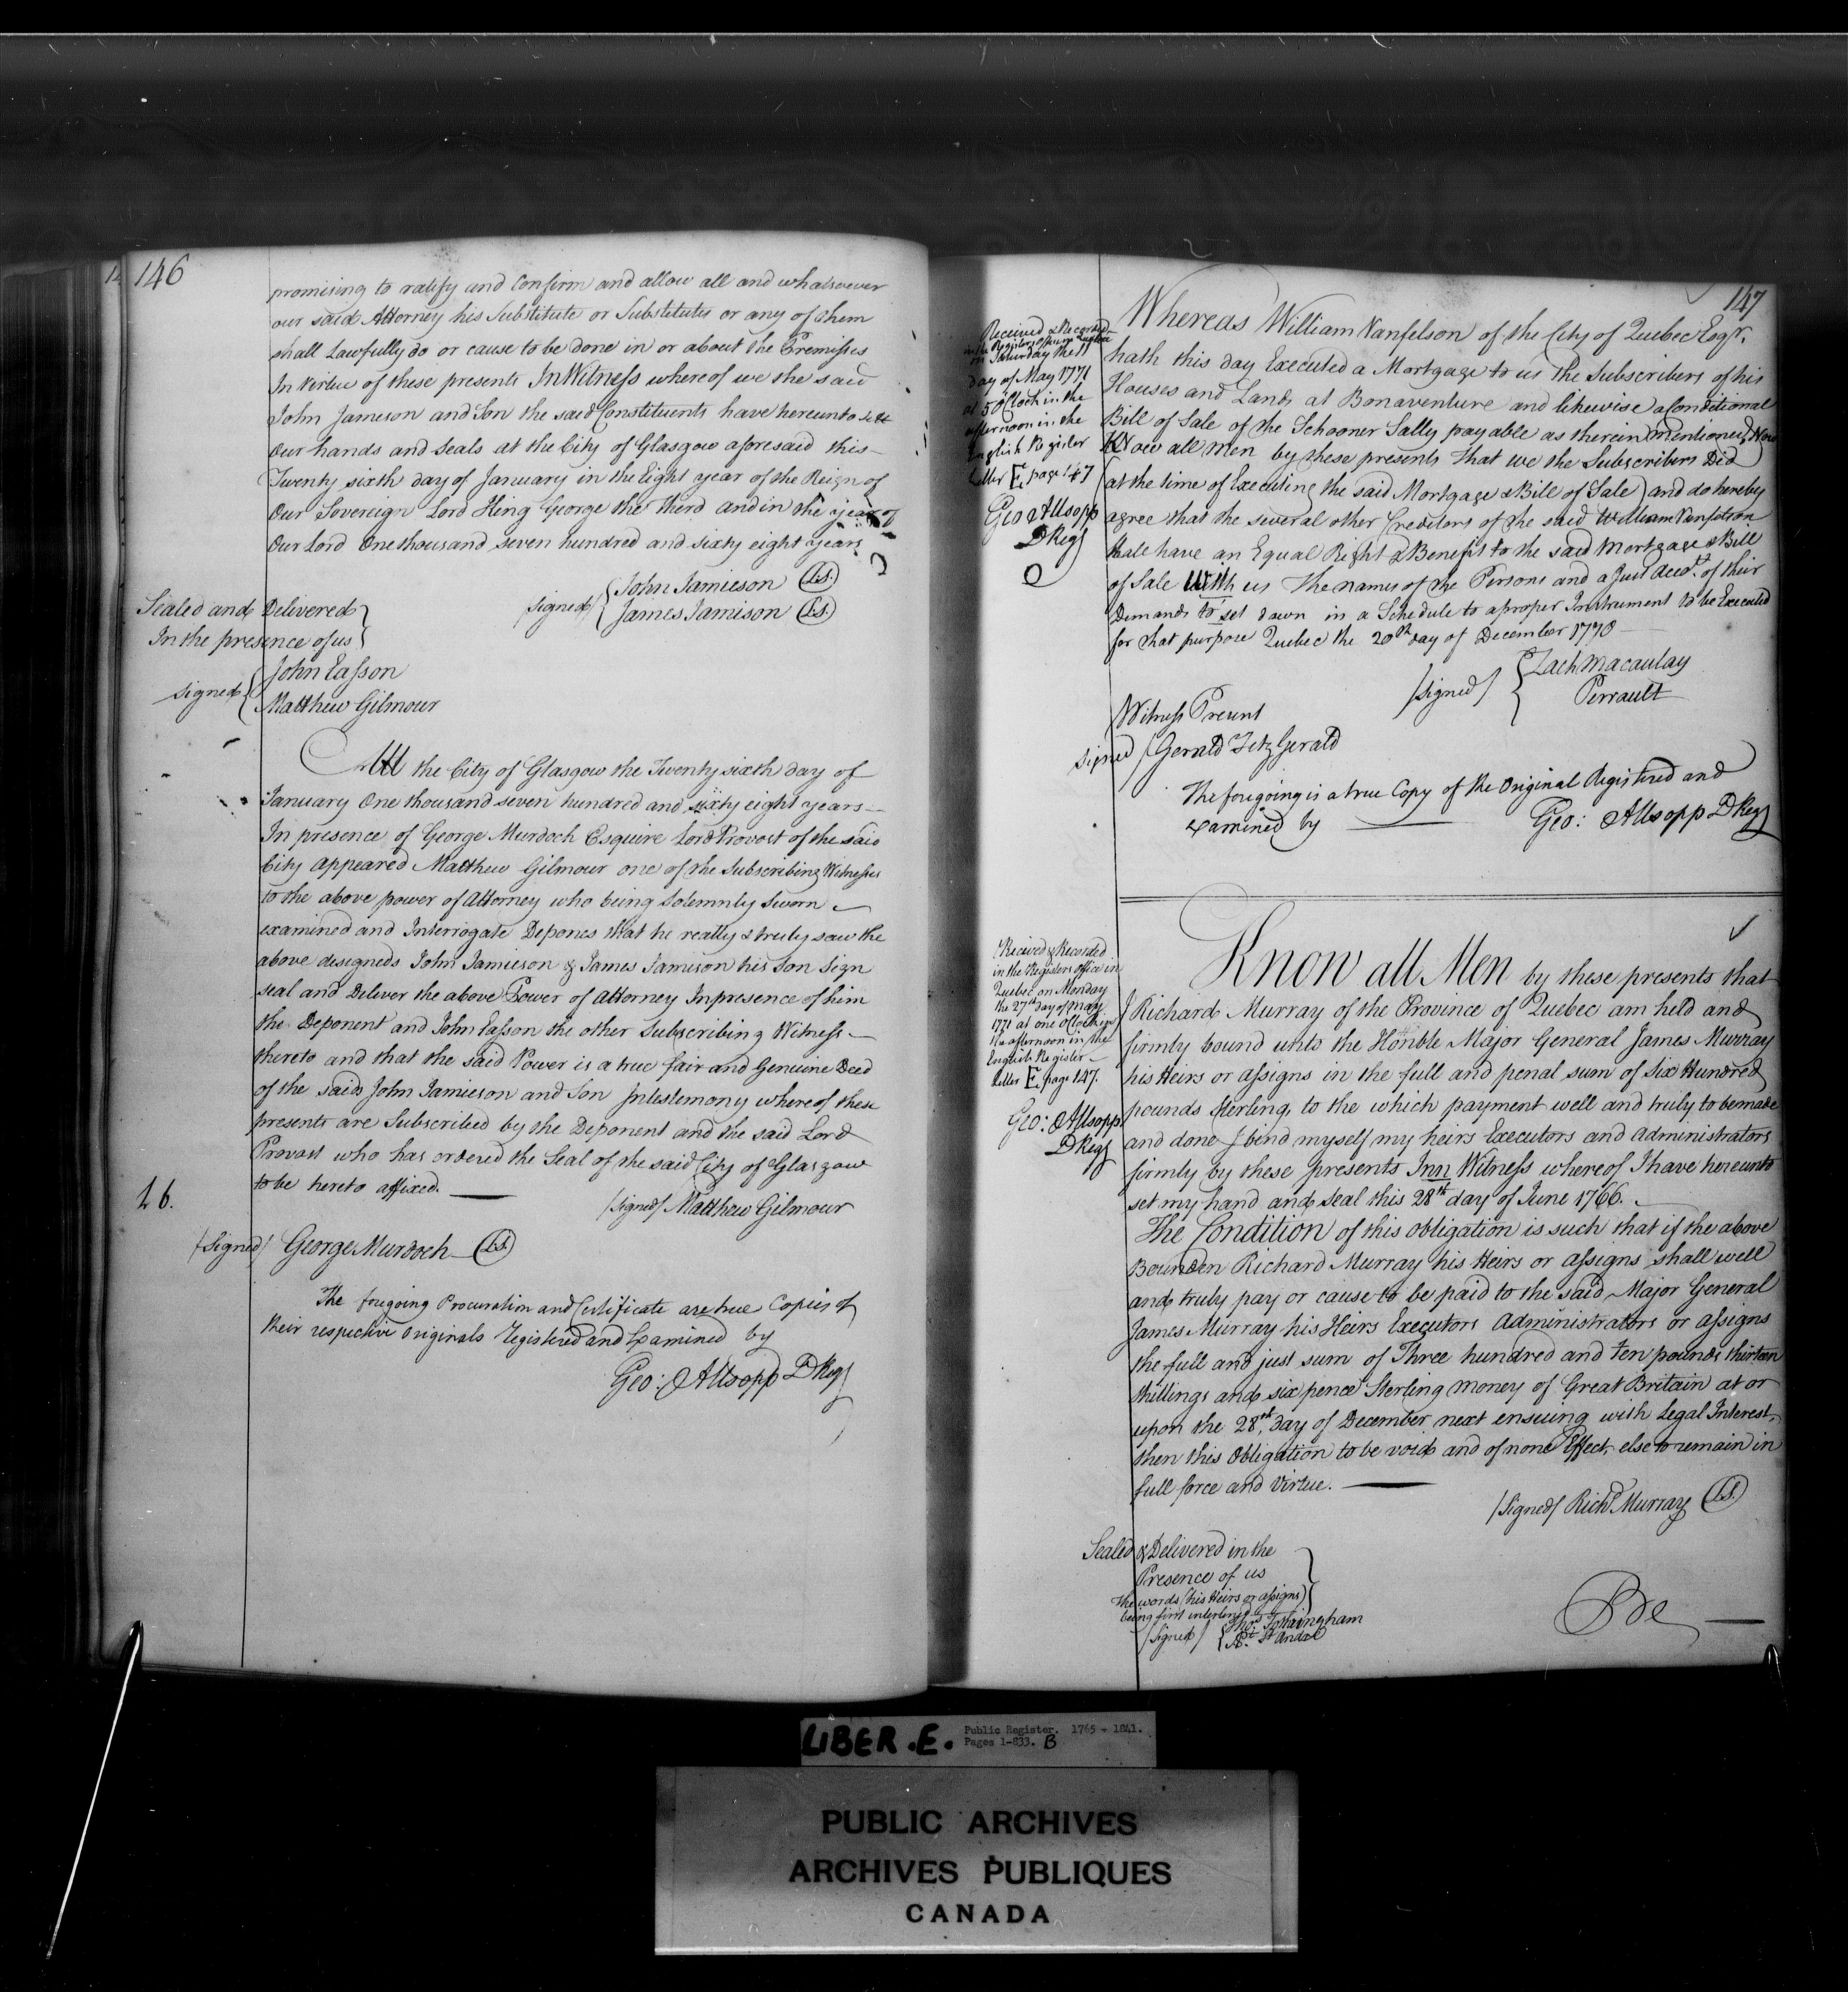 146
promising to ratify and Confirm and allow all and whatsoever
our said Attorney his Substitute or Substitutes or any of them
shall Lawfully do or cause to be done in or about the Premisses
In Virtue of these presents In Witness whereof we the said
John Jameson and Son the said Constituents have hereunto sett
Our hands and Seals at the City of Glasgow aforesaid this
Twenty sixth day of January in the Eight year of the Reign of
Our Sovereign Lord King George the therd and in the year of
Our Lord One thousand seven hundred and sixty eight years
Sealed and Delivered
In the presence of us
signed John Jamieson L.S.
James Jamison L.S.
signed John Easson
Matthew Gilmour
At the City of Glasgow the Twenty sixth day of
January One thousand seven hundred and sixty eight years
In presence of George Murdoch Esquire Lord Provost of the said
City appeared Matthew Gilmour one of the Subscribing Witnesses
to the above power of Attorney who being Solemnly Sworn
examined and Interrogate Depones that he really & truly saw the
above designeds John Jamieson & James Jamison his Son Sign
seal and Deliver the above Power of Attorney In presence of him
the Deponent and John Easson the other Subscribing Witness
thereto and that the said Power is a true fair and Genuine Deed
of the saids John Jamieson and Son In testemony whereof these
presents are Subscribed by the Deponent and the said Lord
Provost who has ordered the Seal of the said City of Glasgow
to be hereto affixed.
16.
/Signed/ Matthew Gilmour
/Signed/ George Murdoch L.S.
The foregoing Procuration and Certificate are true Copies of
their respective Originals Registered and Examined by
Geo: Allsopp DReg
147
Received & Recorded
in the Registers Office in Quebec
on Saturday the 11
day of May 1771
at 5 OClock in the
afternoon in the
English Register
Letter E, page 147
Geo Allsopp
DReg
Whereas William Vanfelson of the City of Quebec Esqr.
hath this day Executed a Mortgage to us the Subscribers of his
Houses and Lands at Bonaventure and likewise a Conditional
Bill of Sale of the Schooner Sally payable as therein mentioned, Now
Know all Men by these presents That we the Subscribers Did
(at the time of Executing the said Mortgage & Bill of Sale) and do hereby
agree that the several other Creditors of the said William Vanfelson
shall have an Equal Right & Benefit to the said Mortgage & Bill
of Sale With us The names of the Persons and a Just Accot. of their
Demands to set down in a Schedule to a proper Instrument to be Executed
for that purpose Quebec the 20th day of December 1770
/Signed/ Zach Macaulay
Perrault
Witness Present
signed / Gerald FitzGerald
The foregoing is a true Copy of the Original Registered and
Examined by
Geo: Allsopp DReg
Received & Recorded
in the Registers office in
Quebec on Monday
the 27th day of May
1771 at one OClock in
the afternoon in the
English Register
Letter E, page 147.
Geo: Allsopp
DReg
Know all Men by these presents that
I Richard Murray of the Province of Quebec am held and
firmly bound unto the Honble Major General James Murray
his Heirs or assigns in the full and penal sum of Six Hundred
pounds Sterling, to the which payment well and truly to be made
and done I bind myself my heirs Executors and Administrators
firmly by these presents Inn Witness whereof I have hereunto
set my hand and seal this 28th day of June 1766.
The Condition of this obligation is such that if the above
Bounden Richard Murray his Heirs or assigns shall well
and truly pay or cause to be paid to the said Major General
James Murray his Heirs Executors Administrators or assigns
the full and just sum of Three hundred and ten pounds thirteen
shillings and six pence Sterling money of Great Britain at or
upon the 28th. day of December next ensuing with Legal Interest,
then this Obligation to be void and of none Effect, else to remain in
full force and Virtue.
/Signed/ Richd. Murray L.S.
Sealed & Delivered in the
Presence of us
the words (his Heirs or assigns)
being first interlined
/signed/ Thos.
St. André
LIBER .E. Public Register. 1765 - 1841.
Pages 1-833. B
PUBLIC ARCHIVES
ARCHIVES PUBLIQUES
CANADA